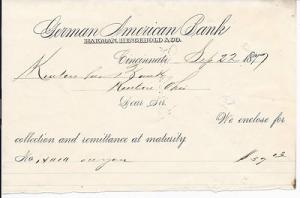 German American Bank
HARMAN, HENGEHOLD & CO.
Cincinnati, Sep 22 1877
Bank
Kenton Ohio
Dear Sir
We enclose for
collection and remittance at maturity
No.